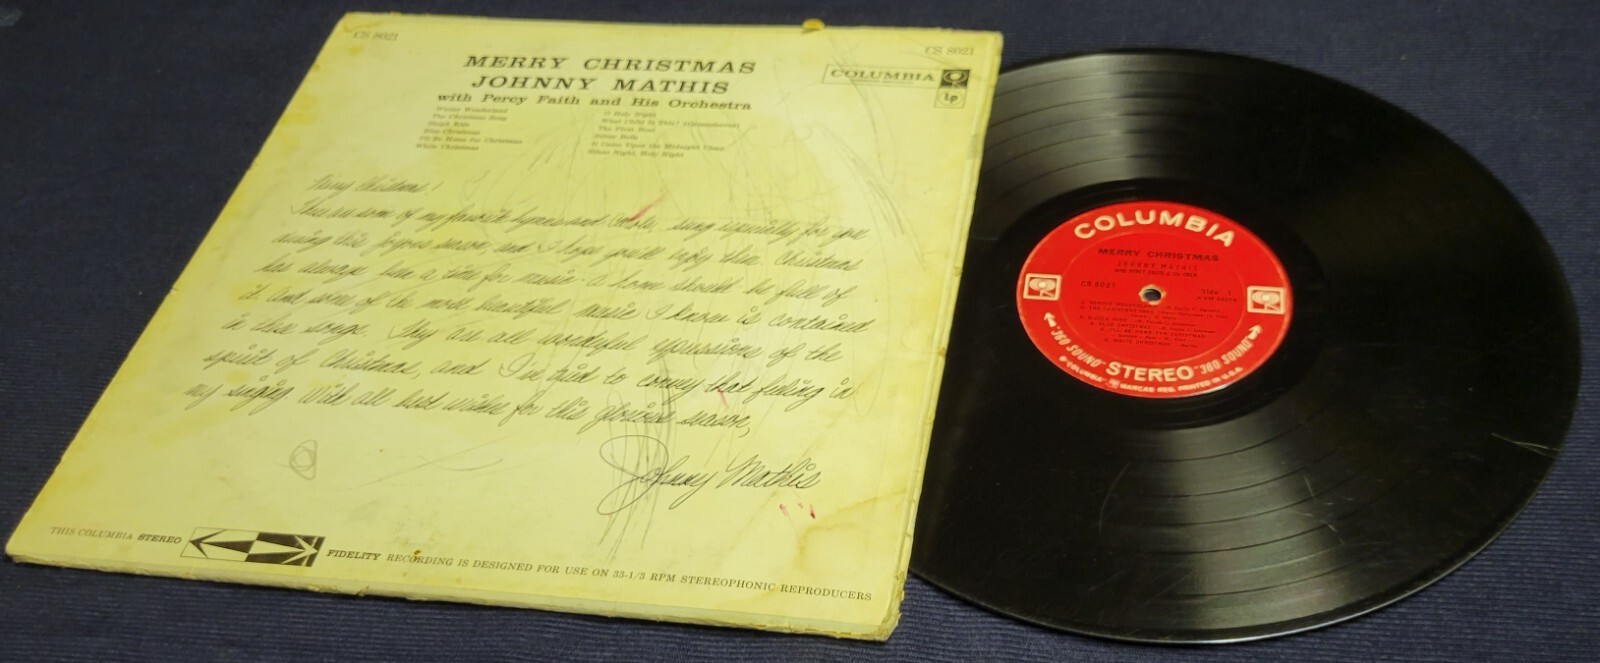 CS 8021
CS 8021
MERRY CHRISTMAS
JOHNNY MATHIS
with Percy Faith and His Orchestra
COLUMBIA
Lp
Winter Wonderland
The Christmas Song
Sleigh Ride
Blue Christmas
I'll Be Home for Christmas
White Christmas
O Holy Night
What Child Is This? (Greensleeves)
The First Noel
Silver Bells
It Came Upon the Midnight Clear
Silent Night, Holy Night
Merry Christmas!
These are some of my favorite hymns and carols, sung especially for you
during this joyous season, and I hope you'll enjoy them. Christmas
has always been a time for music - a home should be full of
it. And some of the most beautiful music I know is contained
in these songs. They are all wonderful expressions of the
spirit of Christmas, and I've tried to convey that feeling in
my singing. With all best wishes for this glorious season,
Johnny Mathis
THIS COLUMBIA STEREO FIDELITY RECORDING IS DESIGNED FOR USE ON 33-1/3 RPM STEREOPHONIC REPRODUCERS
COLUMBIA
MERRY CHRISTMAS
JOHNNY MATHIS
WITH PERCY FAITH & HIS ORCH.
CS 8021
Side 1
"360 SOUND" STEREO "360 SOUND"
"COLUMBIA" MARCAS REG. PRINTED IN U.S.A.